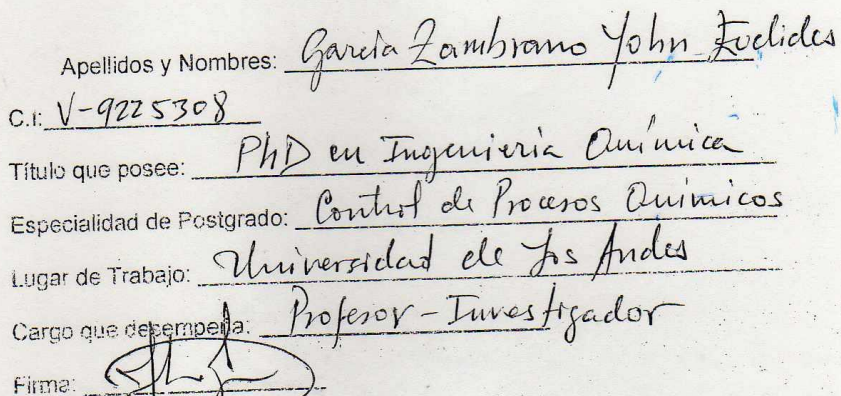 Apellidos y Nombres: García Zambrano John Euclides
C.I: V-9225308
Título que posee: PhD en Ingeniería Química
Especialidad de Postgrado: Control de Procesos Químicos
Lugar de Trabajo: Universidad de Los Andes
Cargo que desempeña: Profesor - Investigador
Firma: